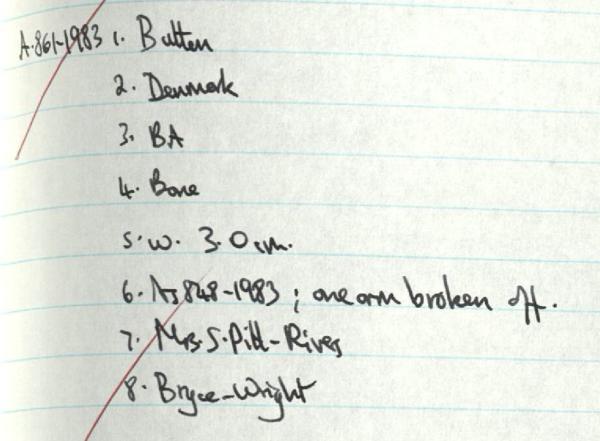 A.861-1983 1. Button
2. Denmark
3. BA
4. Bone
5. w. 3.0 cm.
6. As 848-1983 ; one arm broken off.
7. Mrs. S. Pitt-Rivers
8. Bryce-Wright